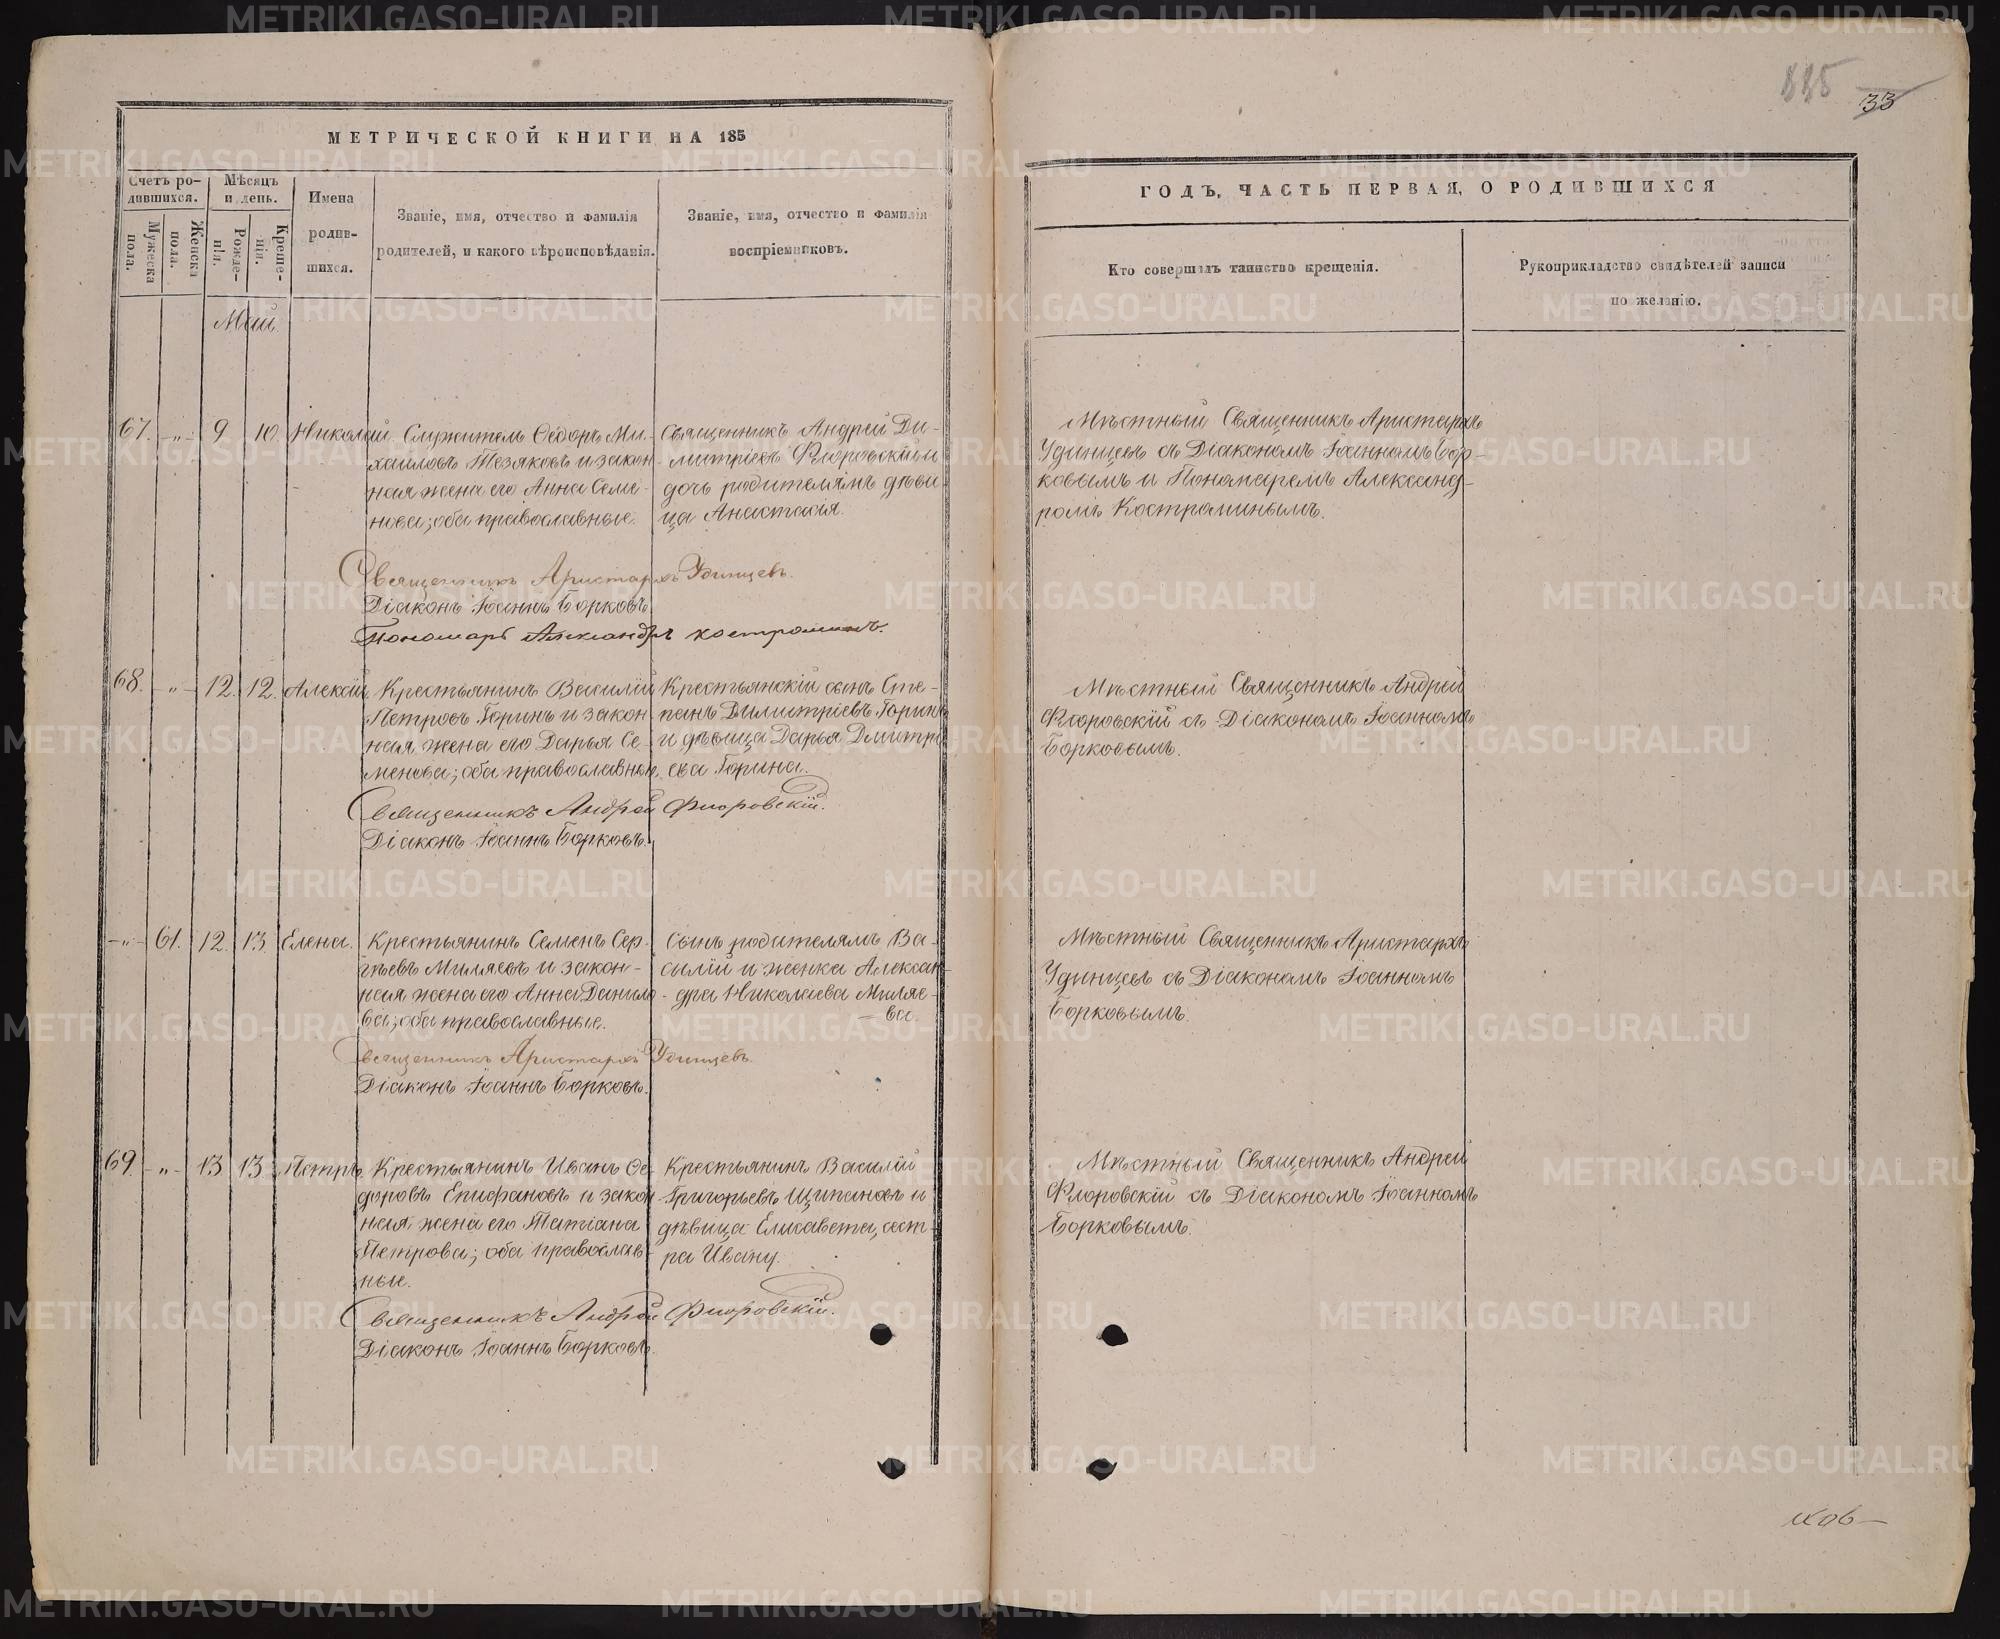 МЕТРИЧЕСКОЙ КНИГИ НА 185
Счетъ ро-
дившихся.
Мужеска
пола.
Женска
пола.
Мѣсяцъ
и день.
Рожде-
нія.
Креще-
нія.
Имена
родив-
шихся.
Званіе, имя, отчество и фамилія
родителей, и какого вѣроисповѣданія.
Званіе, имя, отчество и фамилія
воспріемниковъ.
Май.
67. -„- 9 10. Николай.
Служитель Ѳедоръ Ми-
хаиловъ Тезяковъ и закон
ная жена его Анна Семе-
нова; оба православные.
Священникъ Андрей Ди-
митріевъ Флоровскій и
дочь родителямъ дѣви-
ца Анастасія.
Священникъ Аристархъ Удинцевъ.
Діаконъ Іоаннъ Борковъ.
Пономарь Александръ Костроминъ.
68. -„- 12. 12. Алексій
Крестьянинъ Василій
Петровъ Горинъ и закон
ная жена его Дарья Се-
менова; оба православные.
Крестьянскій сынъ Сте-
панъ Димитріевъ Горинъ
и дѣвица Дарья Дмитрі-
ева Горина.
Священникъ Андрей Флоровскій.
Діаконъ Іоаннъ Борковъ.
-„- 61. 12. 13. Елена.
Крестьянинъ Семенъ Сер-
гѣевъ Миляевъ и закон-
ная жена его Анна Данило-
ва; оба православные.
Сынъ родителямъ Ва-
силій и женка Алексан-
дра Николаева Миляе-
ва.
Священникъ Аристархъ Удинцевъ.
Діаконъ Іоаннъ Борковъ.
69. -„- 13 13. Петръ.
Крестьянинъ Иванъ Ѳе-
доровъ Епифановъ и закон
ная жена его Татіана
Петрова; оба православ-
ные.
Крестьянинъ Василій
Григорьевъ Щипановъ и
дѣвица Елисавета, сест-
ра Ивану.
Священникъ Андрей Флоровскій.
Діаконъ Іоаннъ Борковъ.
33
ГОДЪ, ЧАСТЬ ПЕРВАЯ, О РОДИВШИХСЯ
Кто совершалъ таинство крещенія.
Рукоприкладство свидѣтелей записи
по желанію.
Мѣстный Священникъ Аристархъ
Удинцевъ съ Діакономъ Іоанномъ Бор-
ковымъ и Пономаремъ Александ-
ромъ Костроминымъ.
Мѣстный Священникъ Андрей
Флоровскій съ Діакономъ Іоанномъ
Борковымъ.
Мѣстный Священникъ Аристархъ
Удинцевъ съ Діакономъ Іоанномъ
Борковымъ.
Мѣстный Священникъ Андрей
Флоровскій съ Діакономъ Іоанномъ
Борковымъ.
METRIKI.GASO-URAL.RU